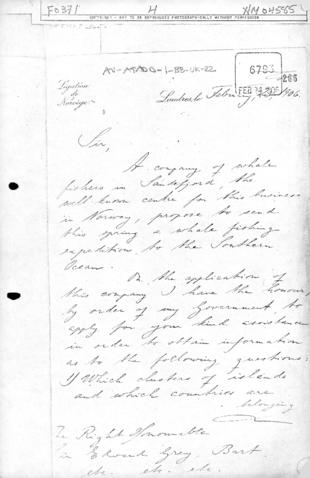 FO371
4
NM04555
COPYRIGHT - NOT TO BE REPRODUCED PHOTOGRAPHICALLY WITHOUT PERMISSION
6783
FEB
Legation
de
Norvège
Londres, le February 1906.
Sir,
A company of whale
fishers in Sandefjord, the
well known centre for this business
in Norway, propose to send
this spring a whale fishing
expedition to the Southern
Ocean.
On the application of
this company I have the honour
by order of my Government, to
apply for your kind assistance
in order to obtain information
as to the following questions:
1) Which clusters of islands
and which countries are
belonging
The Right Honourable
Sir Edward Grey, Bart.
etc. etc. etc.